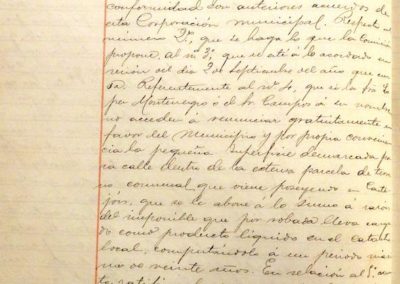 conformidad con anteriores acuerdos de
esta Corporación municipal. Respecto al
número 2º, que se haga lo que la Comisión
propone, al nº 3º, que se esté á lo acordado en
sesión del día 2 de Septiembre del año que cur-
sa. Referentemente al nº 4, que si la Srª
Montenegro ó el Sr. Campos á su nombre
no acceden á renunciar gratuitamente en
favor del Municipio y por propia convenien-
cia la pequeña superficie demarcada pa-
ra calle dentro de la extensa parcela de terre-
no comunal que viene poseyendo en Caste
jón, que se le abone á lo sumo á razón
del imponible que por robada lleva carga-
do como producto líquido en el catastro
local, computándolo á un periodo máxi-
mo de veinte años. En relación al 5º